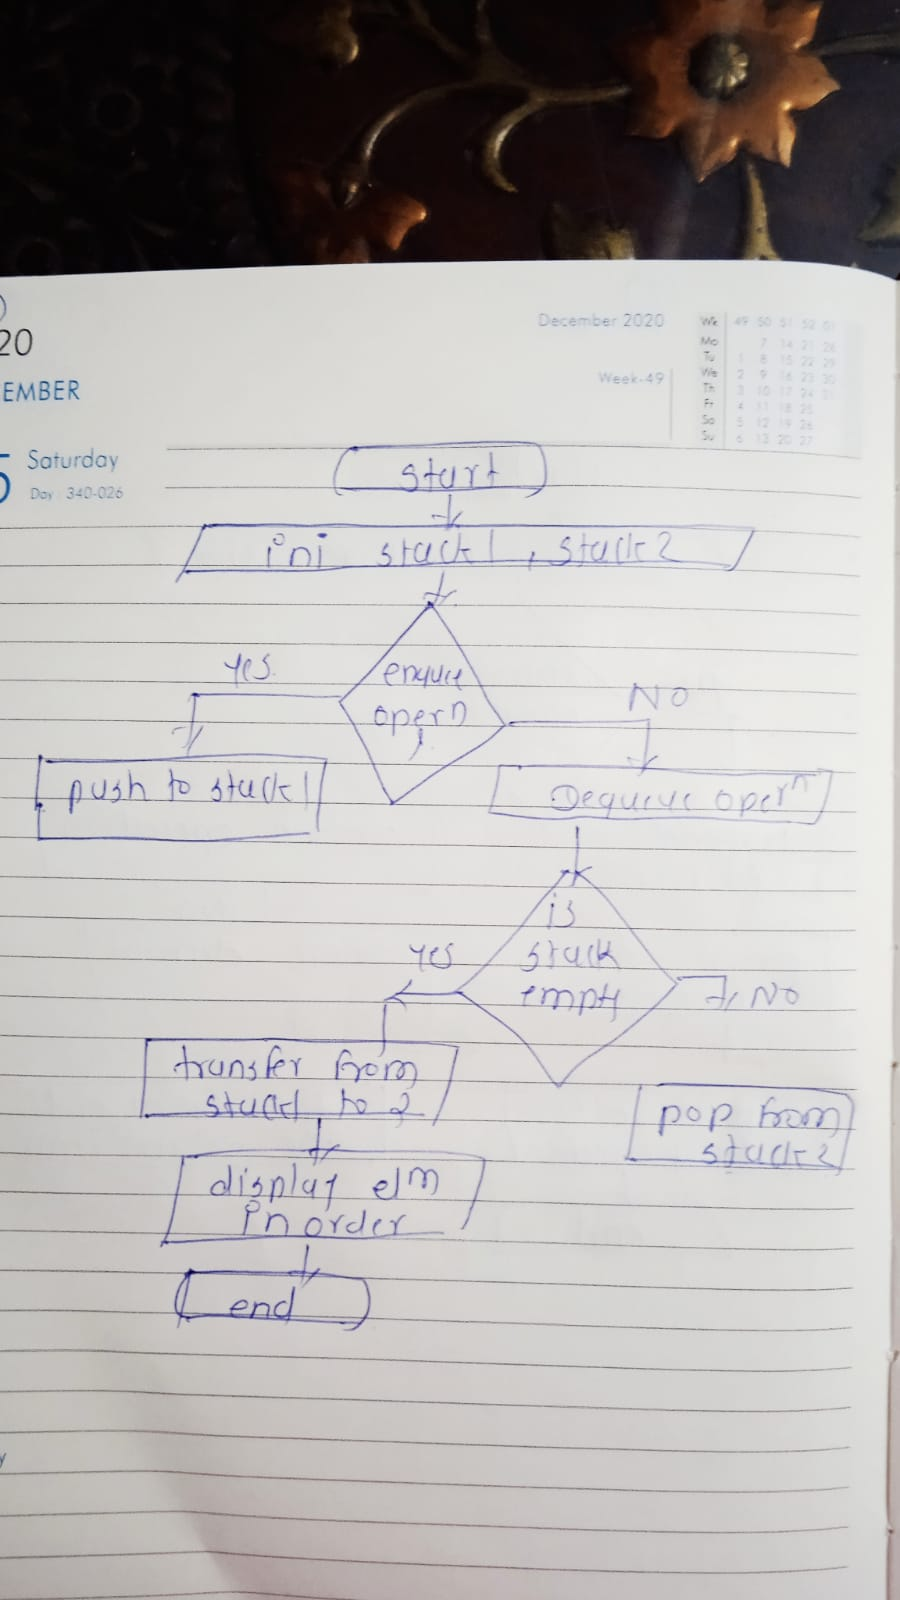 20
EMBER
5 Saturday
Day : 340-026
December 2020
Week-49
Wk 49 50 51 52 01
Mo 7 14 21 28
Tu 1 8 15 22 29
We 2 9 16 23 30
Th 3 10 17 24 31
Fr 4 11 18 25
Sa 5 12 19 26
Su 6 13 20 27
start
ini stack1, stack2
yes
enqueue
opern
?
NO
push to stack1
Dequeue opern
is
stack
empty
yes
NO
transfer from
stack1 to 2
pop from
stack2
display elm
in order
end